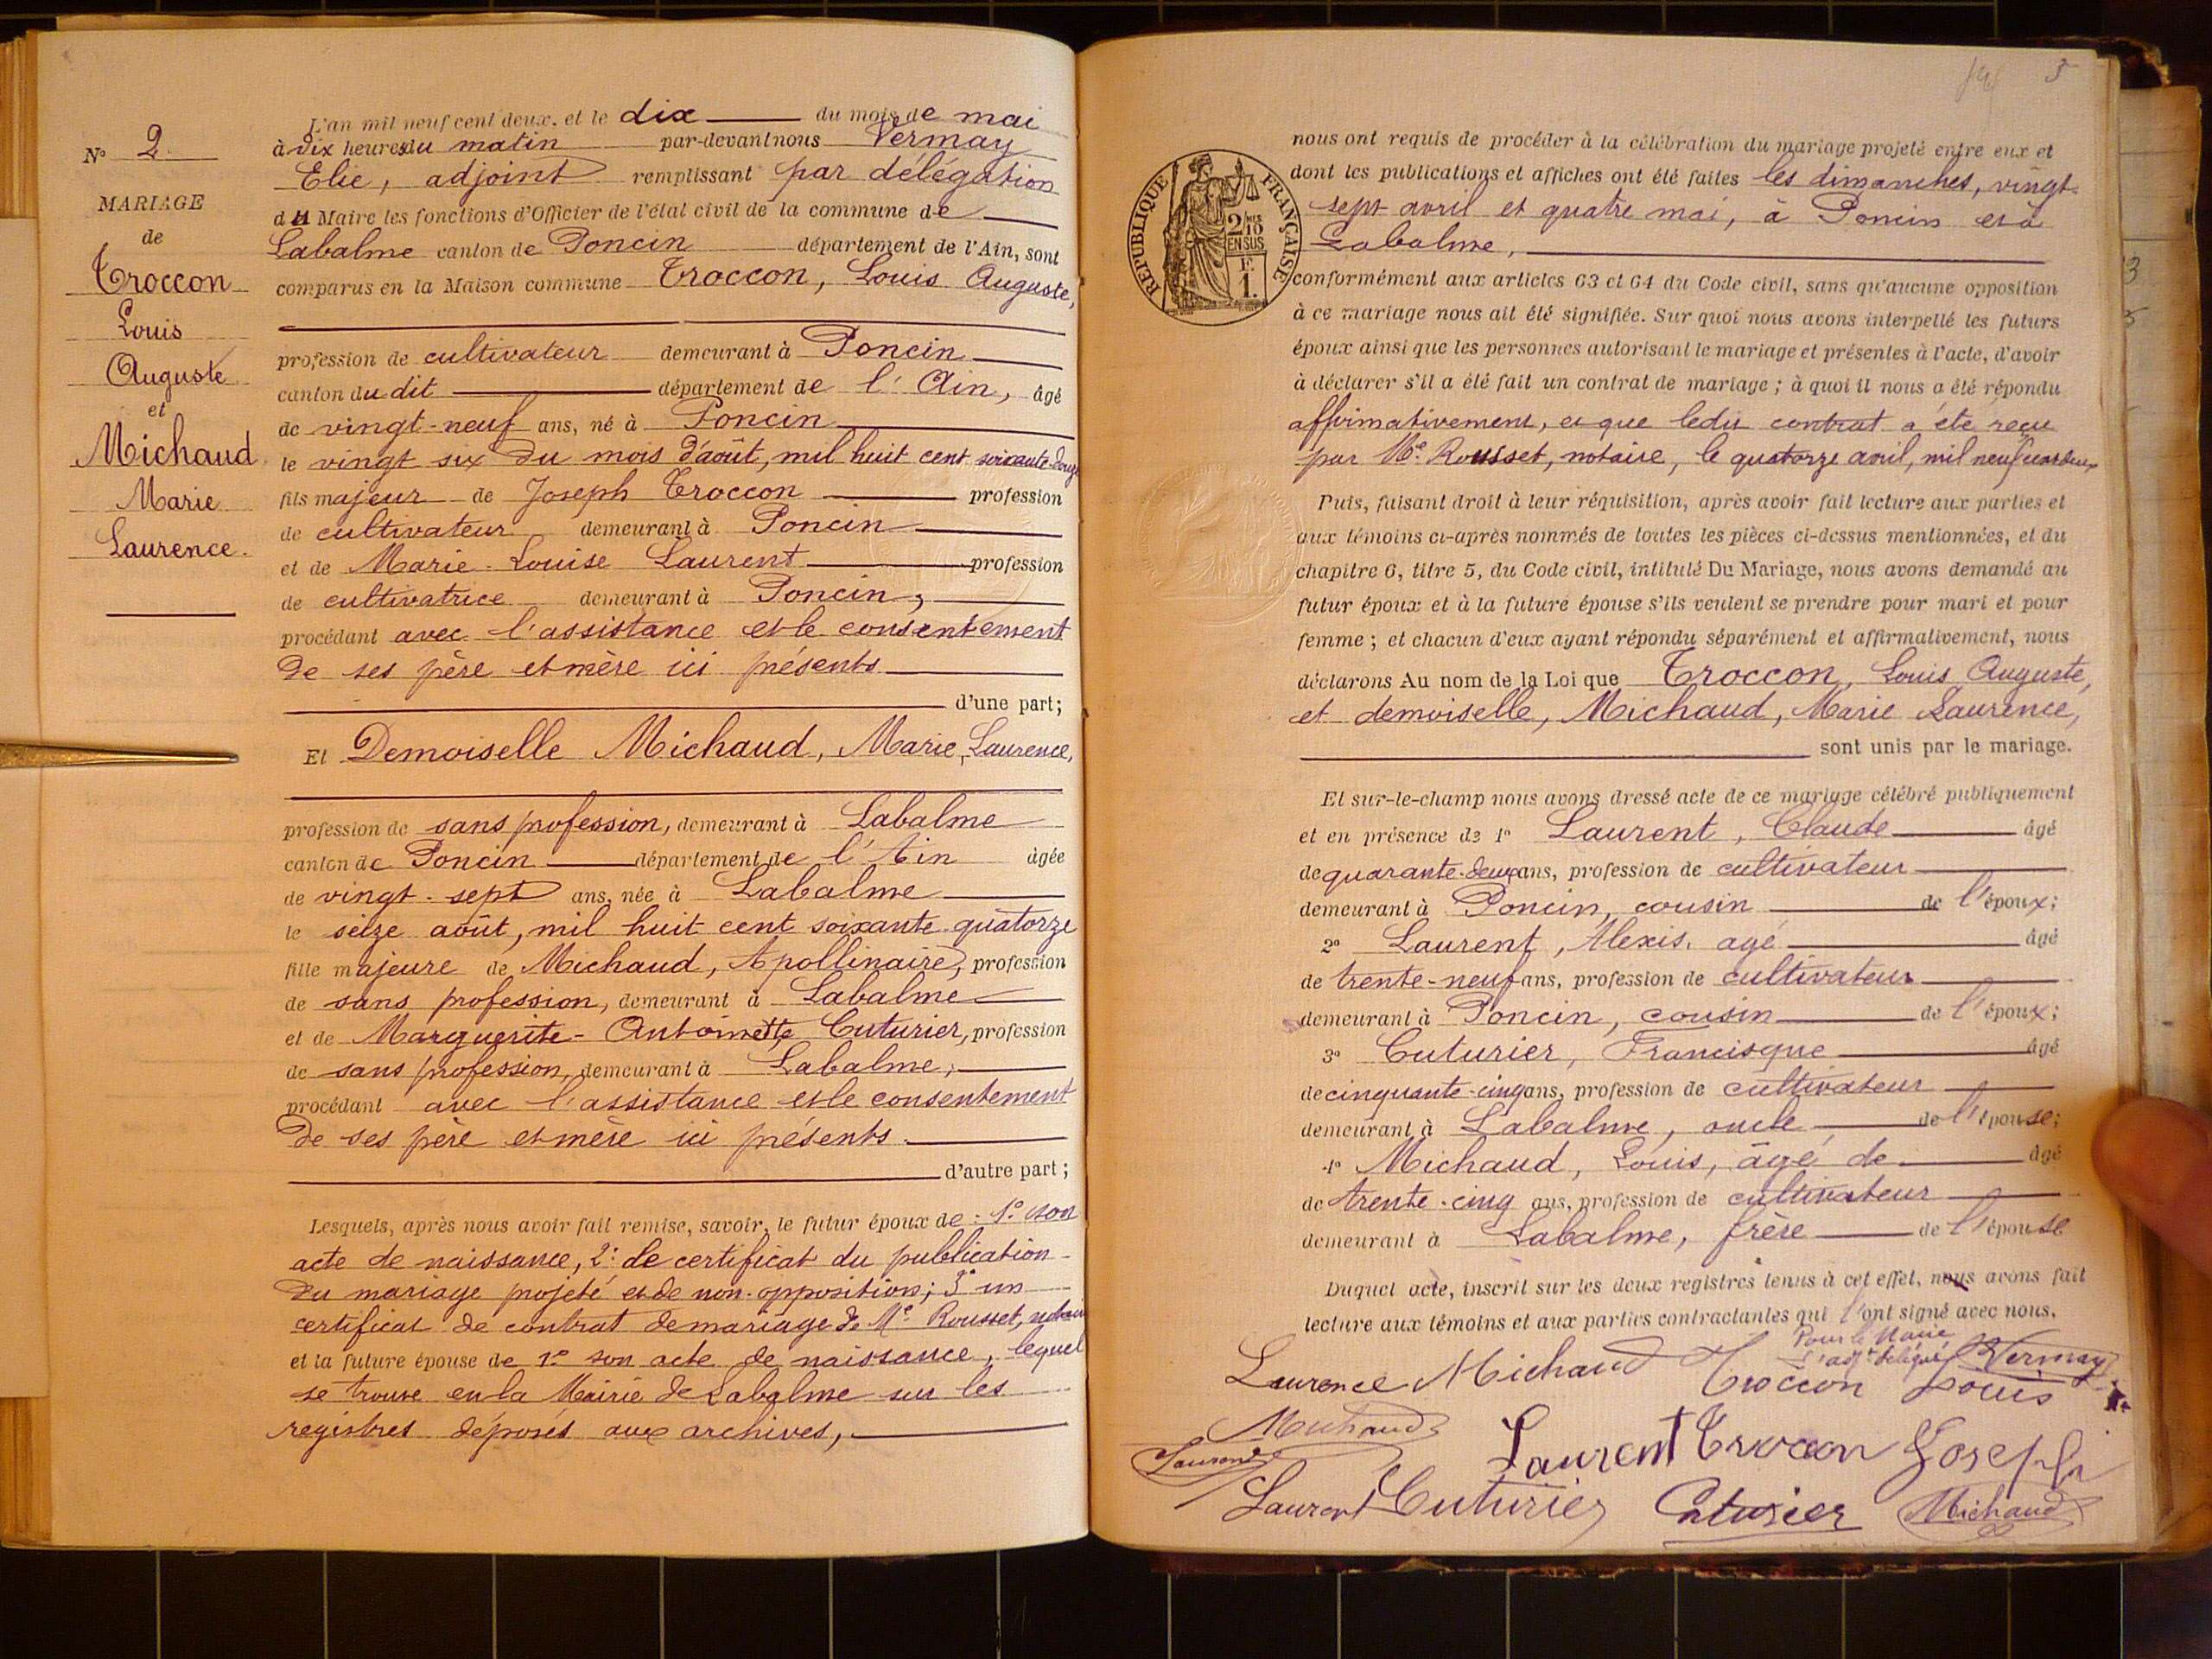 N° 2.
MARIAGE
de
Troccon
Louis
Auguste
et
Michaud
Marie
Laurence.
L'an mil neuf cent deux, et le dix du mois de mai
à dix heures du matin par-devant nous Vermay
Elie, adjoint remplissant par délégation
du Maire les fonctions d'Officier de l'état civil de la commune de
Labalme canton de Poncin département de l'Ain, sont
comparus en la Maison commune Troccon, Louis Auguste,
profession de cultivateur demeurant à Poncin
canton du dit département de l'Ain, âgé
de vingt-neuf ans, né à Poncin
le vingt six du mois d'août, mil huit cent soixante-douze
fils majeur de Joseph Troccon profession
de cultivateur demeurant à Poncin
et de Marie-Louise Laurent profession
de cultivatrice demeurant à Poncin,
procédant avec l'assistance et le consentement
de ses père et mère ici présents
d'une part;
Et Demoiselle Michaud, Marie, Laurence,
profession de sans profession, demeurant à Labalme
canton de Poncin département de l'Ain âgée
de vingt-sept ans, née à Labalme
le seize août, mil huit cent soixante-quatorze
fille majeure de Michaud, Apollinaire, profession
de sans profession, demeurant à Labalme
et de Marguerite-Antoinette Cuturier, profession
de sans profession, demeurant à Labalme,
procédant avec l'assistance et le consentement
de ses père et mère ici présents.
d'autre part;
Lesquels, après nous avoir fait remise, savoir, le futur époux de : 1° son
acte de naissance, 2° le certificat du publication
du mariage projeté et de non-opposition; 3° un
certificat de contrat de mariage de Me Rousset, notaire
et la future épouse de 1° son acte de naissance, lequel
se trouve en la Mairie de Labalme sur les
registres déposés aux archives,
5
RÉPUBLIQUE FRANÇAISE
2/10
EN SUS
F.
1.
nous ont requis de procéder à la célébration du mariage projeté entre eux et
dont les publications et affiches ont été faites les dimanches, vingt-
sept avril et quatre mai, à Poncin et à
Labalme,
conformément aux articles 63 et 64 du Code civil, sans qu'aucune opposition
à ce mariage nous ait été signifiée. Sur quoi nous avons interpellé les futurs
époux ainsi que les personnes autorisant le mariage et présentes à l'acte, d'avoir
à déclarer s'il a été fait un contrat de mariage ; à quoi il nous a été répondu
affirmativement, et que ledit contrat a été reçu
par Me Rousset, notaire, le quatorze avril, mil neuf cent deux
Puis, faisant droit à leur réquisition, après avoir fait lecture aux parties et
aux témoins ci-après nommés de toutes les pièces ci-dessus mentionnées, et du
chapitre 6, titre 5, du Code civil, intitulé Du Mariage, nous avons demandé au
futur époux et à la future épouse s'ils veulent se prendre pour mari et pour
femme ; et chacun d'eux ayant répondu séparément et affirmativement, nous
déclarons Au nom de la Loi que Troccon, Louis Auguste,
et demoiselle, Michaud, Marie Laurence,
sont unis par le mariage.
Et sur-le-champ nous avons dressé acte de ce mariage célébré publiquement
et en présence de 1° Laurent, Claude âgé
de quarante-deux ans, profession de cultivateur
demeurant à Poncin, cousin de l'époux;
2° Laurent, Alexis, agé âgé
de trente-neuf ans, profession de cultivateur
demeurant à Poncin, cousin de l'époux;
3° Cuturier, Francisque âgé
de cinquante-cinq ans, profession de cultivateur
demeurant à Labalme, oncle de l'épouse;
4° Michaud, Louis, âgé de âgé
de trente-cinq ans, profession de cultivateur
demeurant à Labalme, frère de l'épouse
Duquel acte, inscrit sur les deux registres tenus à cet effet, nous avons fait
lecture aux témoins et aux parties contractantes qui l'ont signé avec nous.
Pour le Maire
l'adjt délégué Vermay
Laurence Michaud Troccon Louis
Michaud
Laurent Troccon Joseph
Laurent Cuturier Cuturier Michaud